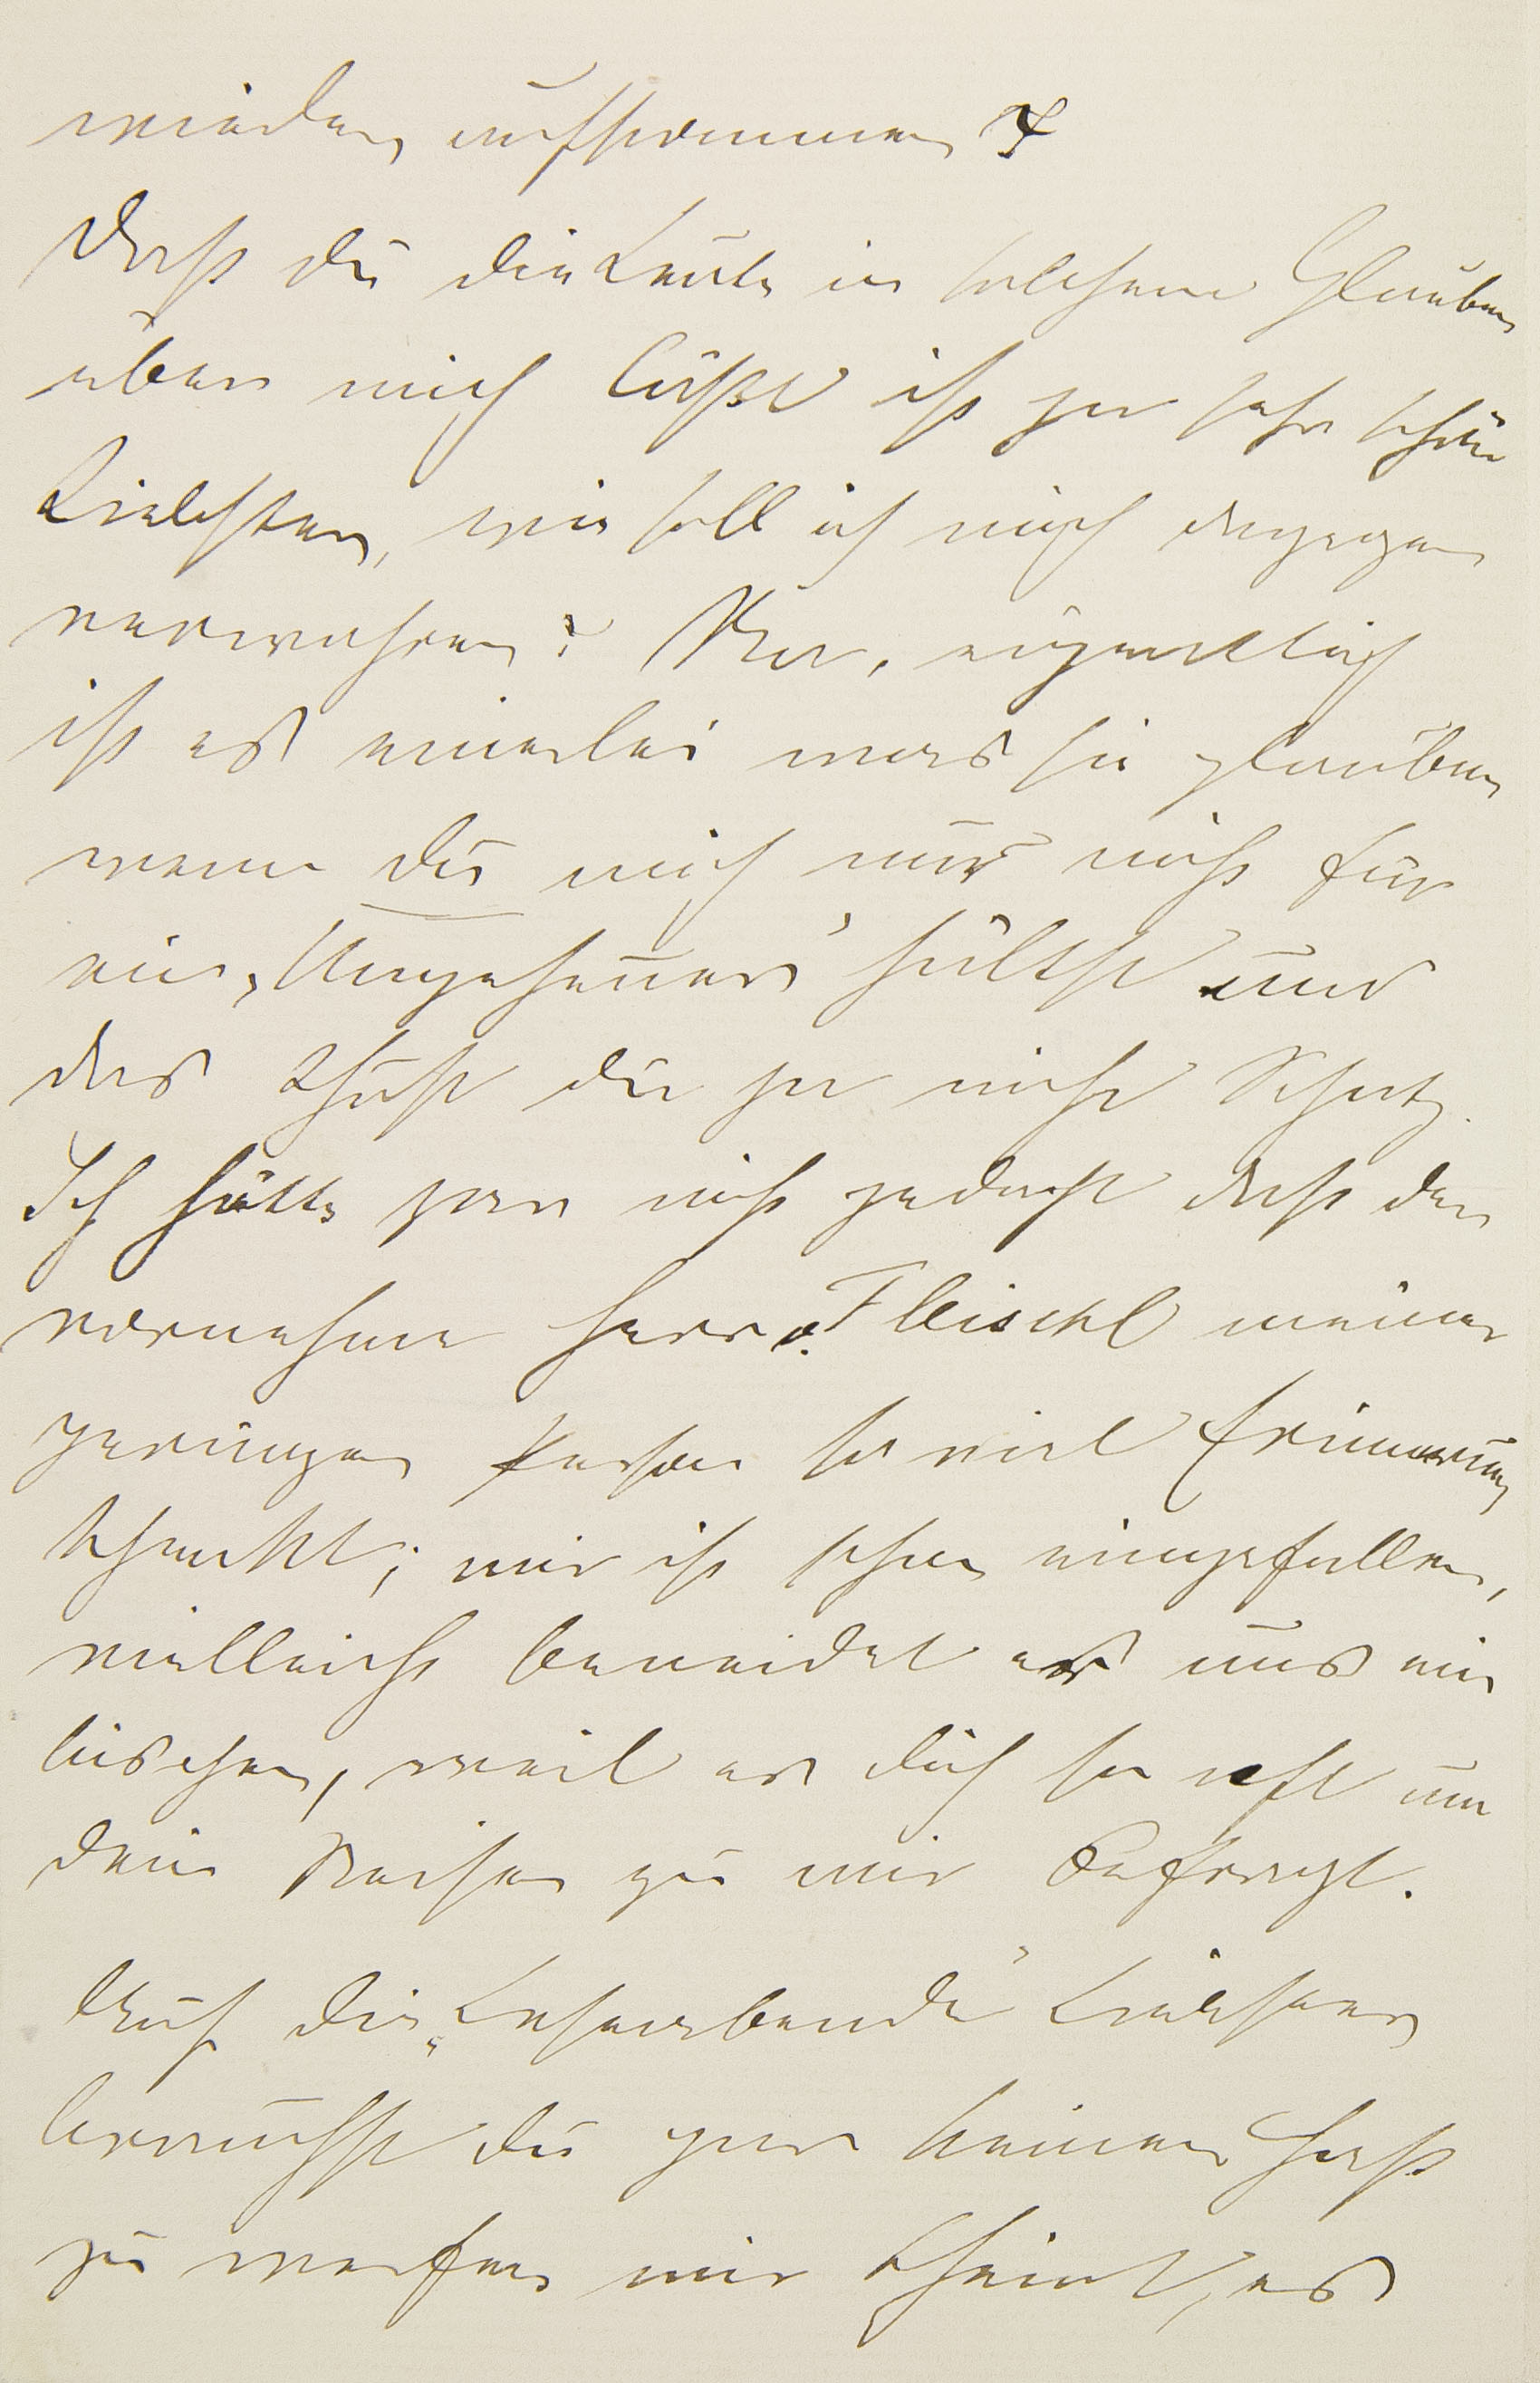 wieder aufkommen?
Daß du die Leute in solchem Glauben
über mich läßt ist ja sehr schön
Liebster, wie soll ich mich dagegen
verwahren? Na, eigentlich
ist es einerlei was sie glauben
wenn du mich nur nicht für
ein „Ungeheuer" hältst und
das thust du ja nicht Schatz.
Ich hätte gar nicht gedacht daß der
vornehme Herr v. Fleischl meiner
geringen Person so viel Erinnerung
schenkt; mir ist schon eingefallen,
vielleicht beneidet er uns ein
bischen, weil er dich so oft um
dein Reisen zu mir befragt.
Auf die „Leseabende" Liebster
brauchst du gar keinen Haß
zu werfen mir scheint, es